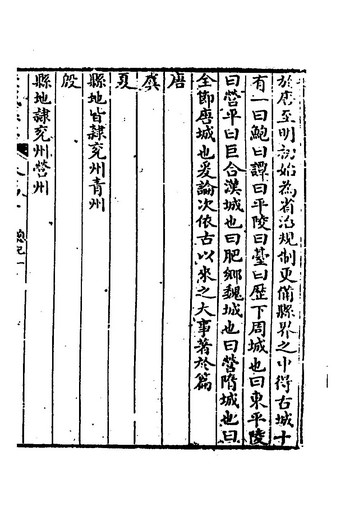 於唐至明祝始為省治規制更備縣界之中得古城十
有一曰鮑曰譚曰平陵曰臺曰歷下周城也曰東平陵
曰營平曰巨合漢城也曰肥鄉魏城也曰營隋城也曰
全節唐城也爰論次依古以來之大事著於篇
唐
虞
夏
縣地皆隸兖州青州
殷
縣地隸兖州營州
總紀一